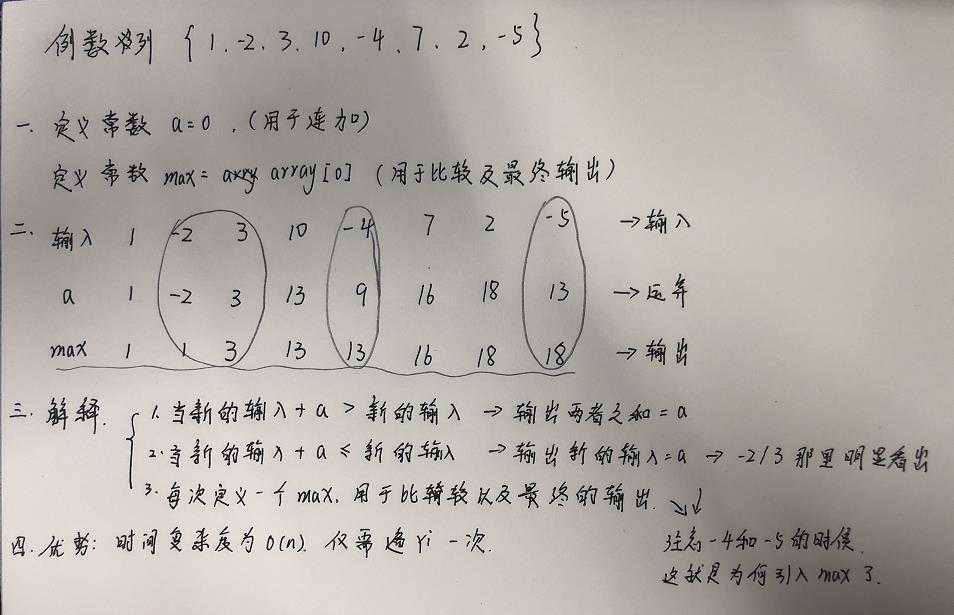 例数将列 { 1, -2, 3, 10, -4, 7, 2, -5 }
一. 定义常数 a=0 ,(用于连加)
定义常数 max= array[0] (用于比较及最终输出)
二. 输入 1 -2 3 10 -4 7 2 -5 →输入
a 1 -2 3 13 9 16 18 13 →运算
max 1 1 3 13 13 16 18 18 →输出
三. 解释. 1. 当新的输入 + a > 新的输入 → 输出两者之和 = a
2. 当新的输入 + a ≤ 新的输入 → 输出新的输入=a → -2/3 那里明显看出
3. 每次定义一个 max, 用于比较以及最终的输出.
四. 优势: 时间复杂度为 O(n). 仅需遍历一次.
注意 -4和-5 的时候.
这就是为何引入 max 了.